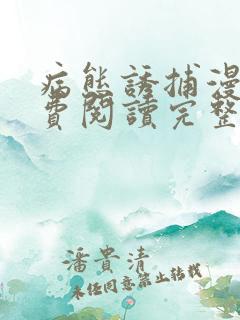 病態誘捕漫
費閱讀完整
潘貴清
未经同意禁止转载